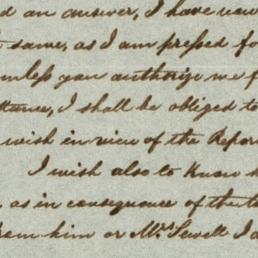 d an answer, I have now
same, as I am pressed fo
unless you authorize me f
ttance, I shall be obliged to
wish in view of the Repor
I wish also to know h
as in consequence of the t
from him or Mrs Sewell I a